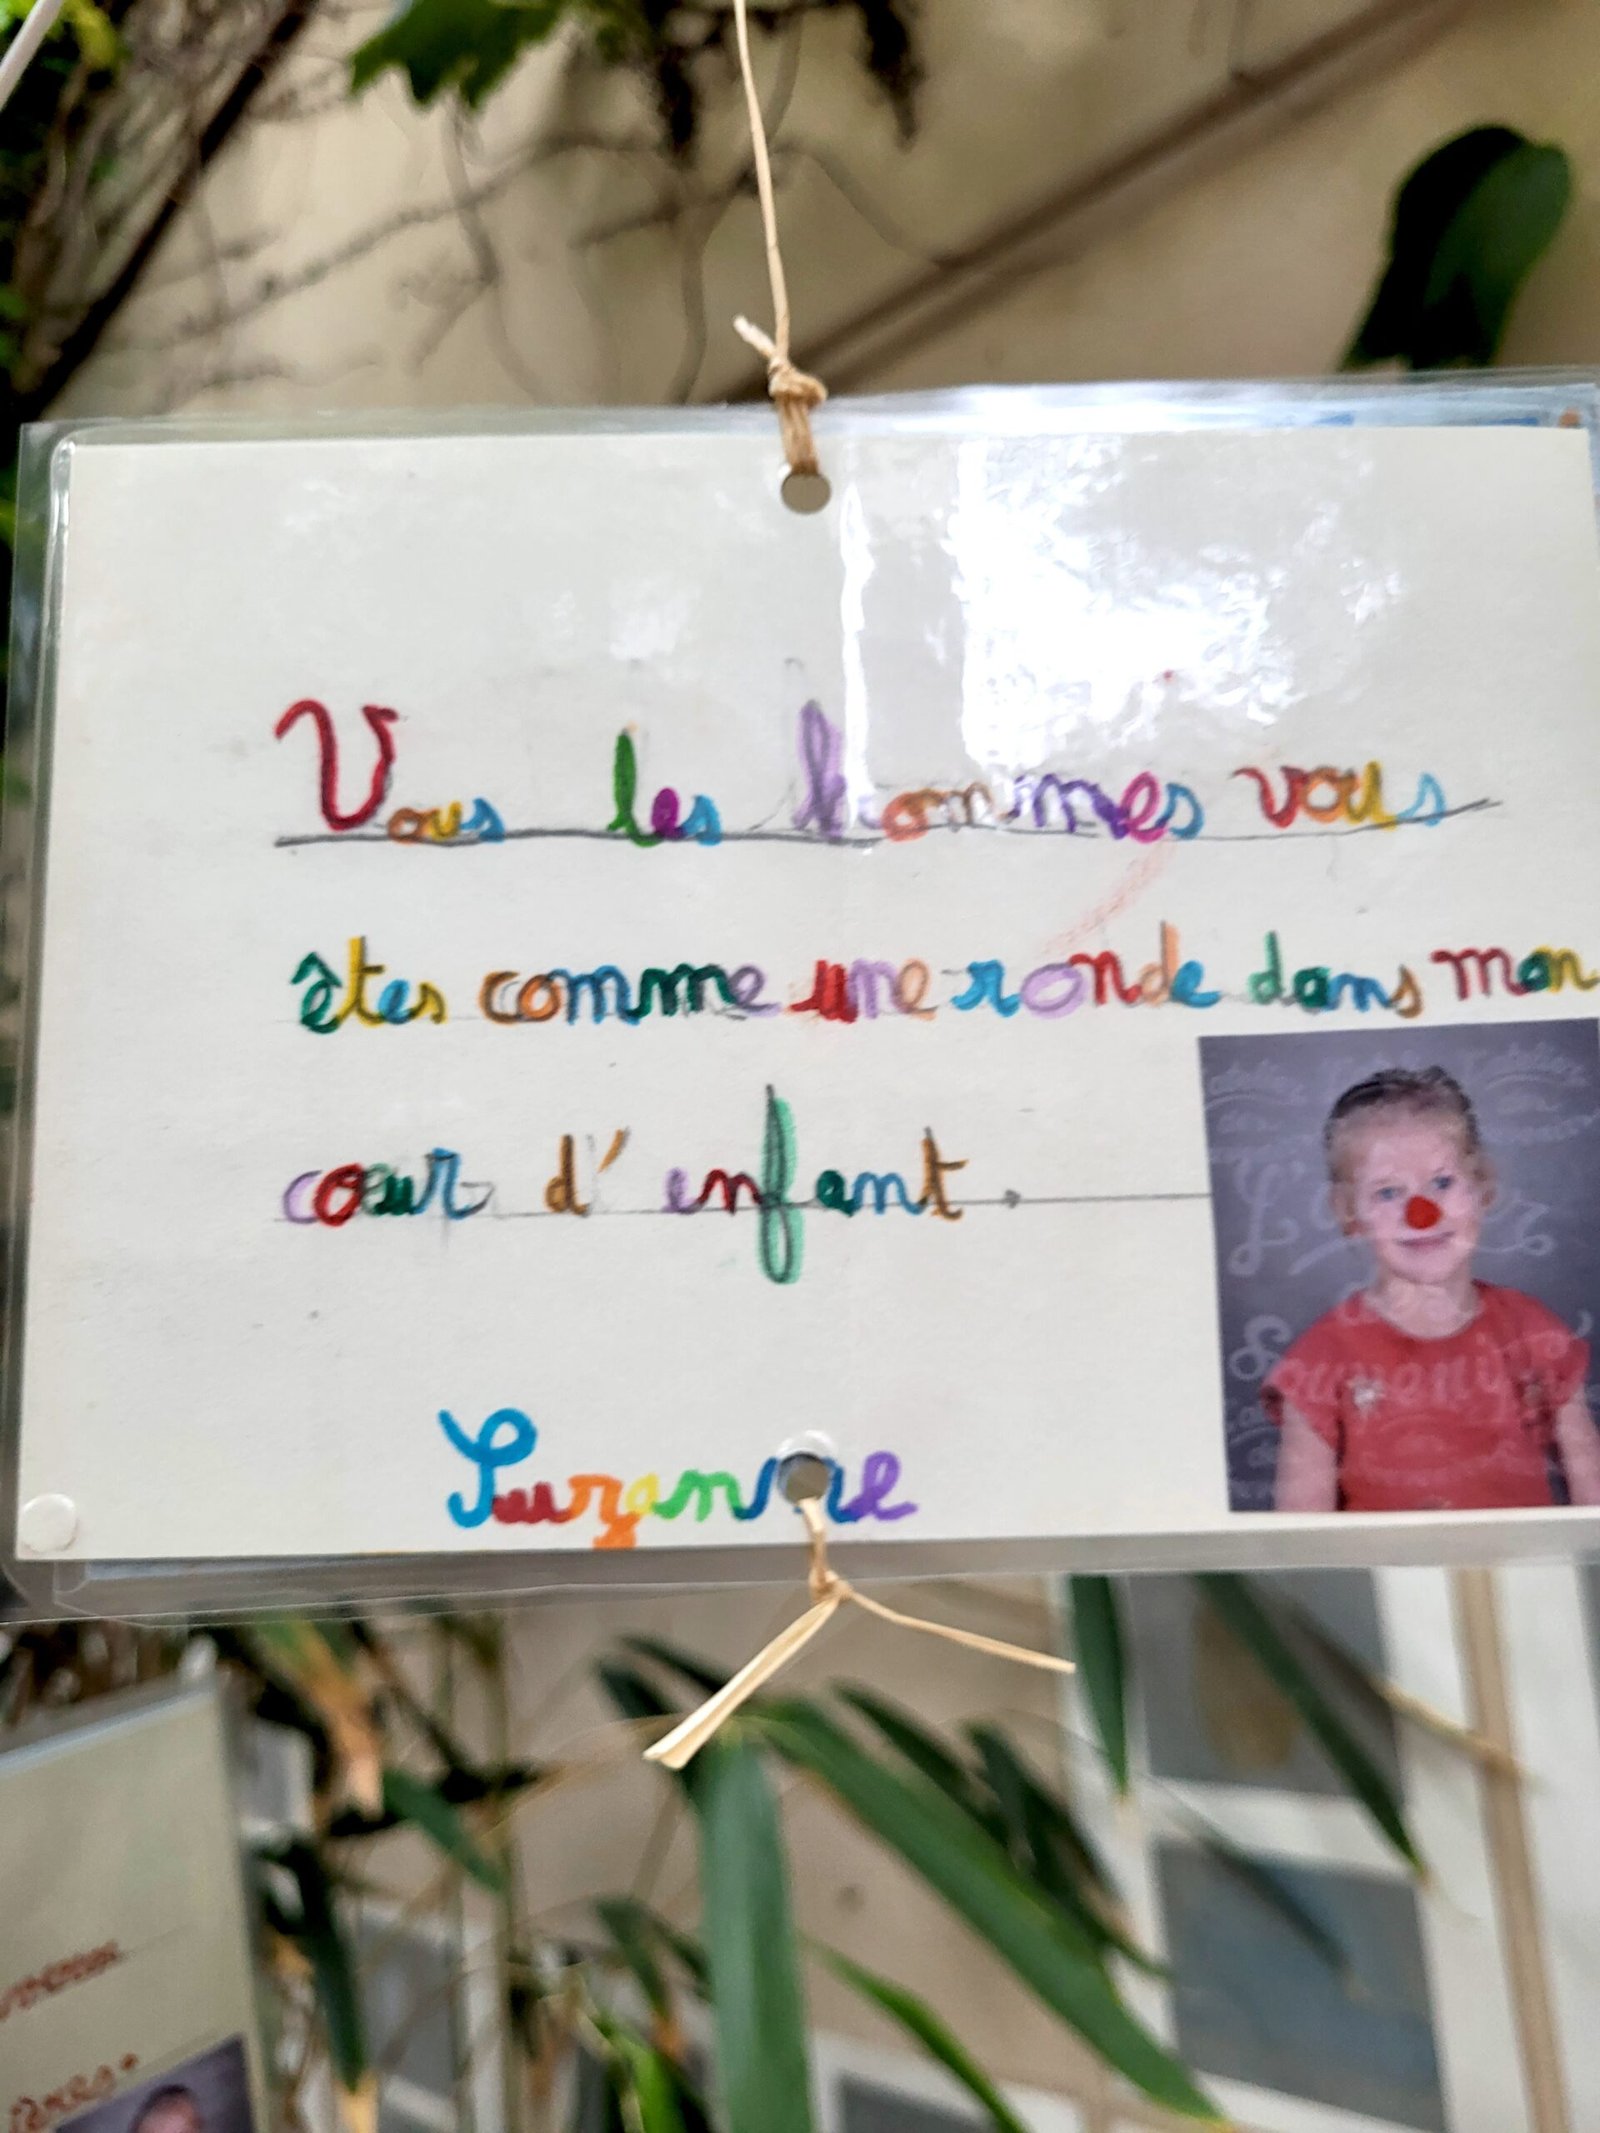 Vous les hommes vous
êtes comme une ronde dans mon
cœur d'enfant.
Suzanne